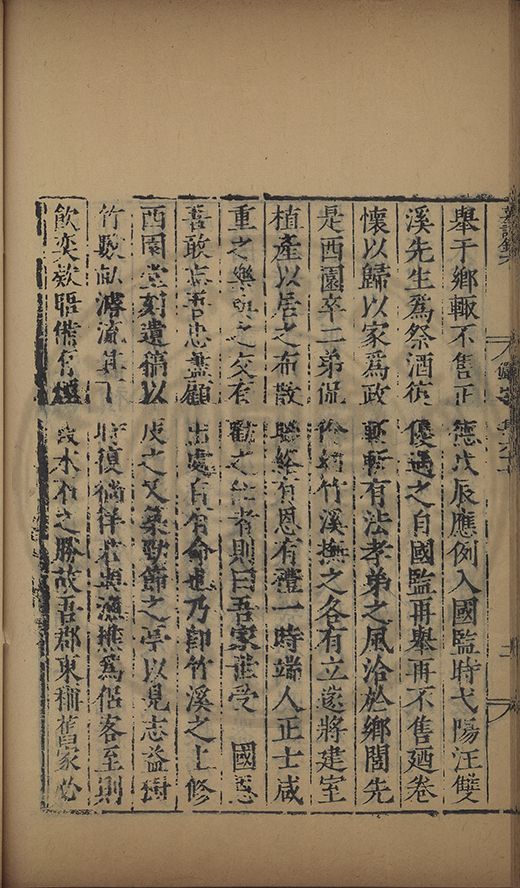 舉于鄉輒不售正德戊辰應例入國監時弋陽汪雙
溪先生爲祭酒優遇之自國監再舉再不售廼卷
懷以歸以家爲政斬斬有法孝弟之風洽於鄉閭先
是西園卒二弟侃竹溪撫之各有立遂將建室
植產以居之布散聯絡有恩有禮一時端人正士咸
重之樂與之交有勸之仕者則曰吾家世受 國恩
敢忘吾忠顧出處自有命也乃卽竹溪之上修
西園堂刻遺稿以庋之又築勁節之亭以見志益樹
竹數畝瀦流其下時復徜徉漁樵爲侶客至則
飲奕欵晤備有水石之勝故吾郡東稱舊家必